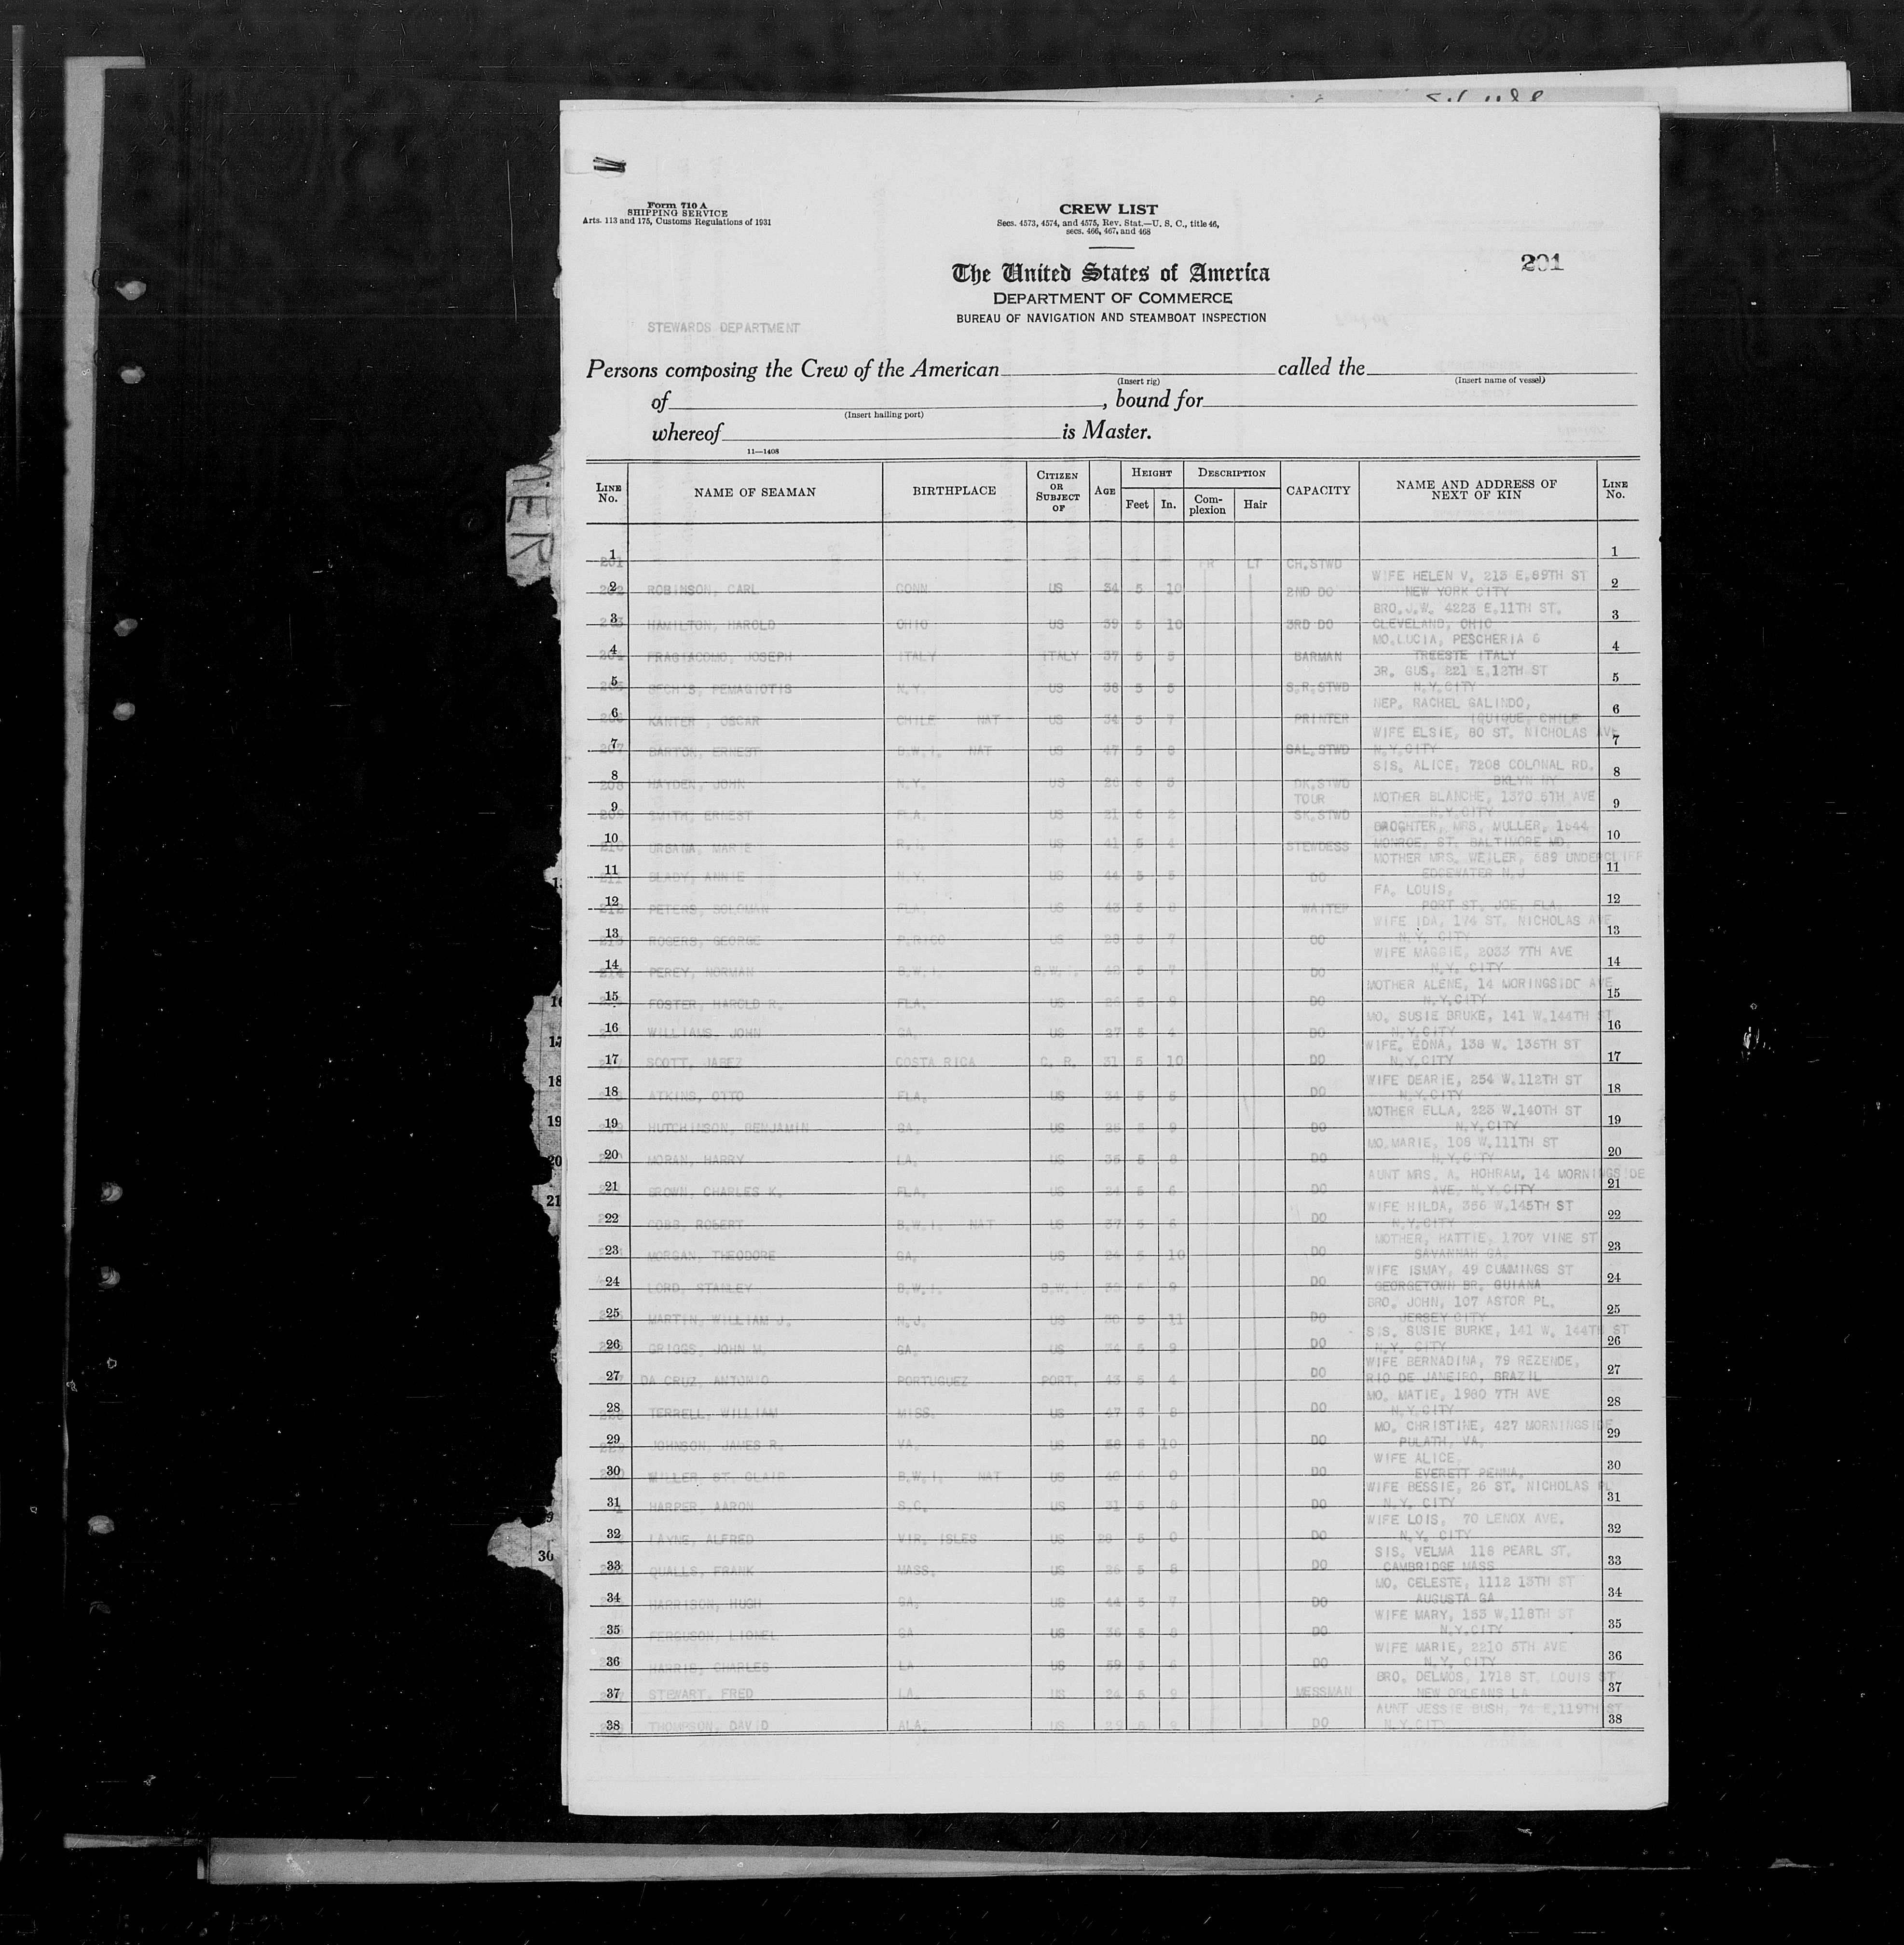 Form 710 A
SHIPPING SERVICE
Arts. 113 and 175, Customs Regulations of 1931
CREW LIST
Secs. 4573, 4574, and 4575, Rev. Stat.—U. S. C., title 46,
secs. 466, 467, and 468
201
The United States of America
DEPARTMENT OF COMMERCE
BUREAU OF NAVIGATION AND STEAMBOAT INSPECTION
STEWARDS DEPARTMENT
Persons composing the Crew of the American called the
(Insert rig) (Insert name of vessel)
of , bound for
(Insert hailing port)
whereof is Master.
11—1408
LINE No. NAME OF SEAMAN BIRTHPLACE CITIZEN OR SUBJECT OF AGE HEIGHT Feet In. DESCRIPTION Complexion Hair CAPACITY NAME AND ADDRESS OF NEXT OF KIN LINE No.
1 201 LT CH.STWD 1
2 ROBINSON, CARL CONN US 34 5 10 2ND DO WIFE HELEN V. 213 E.89TH ST NEW YORK CITY 2
3 HAMILTON, HAROLD OHIO US 39 5 10 3RD DO BRO.J.W. 4223 E.11TH ST. CLEVELAND, OHIO 3
4 FRAGIACOMO, JOSEPH ITALY ITALY 37 5 5 BARMAN MO.LUCIA, PESCHERIA 6 TREESTE ITALY 4
5 N.Y. US 38 5 5 S.R.STWD BR. GUS, 221 E.12TH ST N.Y.CITY 5
6 KANTER, OSCAR CHILE NAT US 34 5 7 PRINTER NEP. RACHEL GALINDO, IQUIQUE, CHILE 6
7 207 BARTON, ERNEST B.W.I. NAT US 47 5 8 SAL.STWD WIFE ELSIE, 80 ST. NICHOLAS AVE N.Y.CITY 7
8 208 HAYDEN, JOHN N.Y. US DK.STWD SIS. ALICE, 7208 COLONAL RD. BKLYN NY 8
9 209 SMITH, ERNEST FLA. US 21 6 2 TOUR SK.STWD MOTHER BLANCHE, 1370 5TH AVE N.Y.CITY 9
10 URBANA, MARIE R.I. US 41 5 4 STEWDESS DAUGHTER, MRS. MULLER, 1544 MONROE, ST. BALTIMORE MD. 10
11 GLADY, ANNIE N.Y. US 44 5 5 DO MOTHER MRS. WEILER, 589 UNDERCLIFF EDGEWATER N.J 11
12 212 PETERS, SOLOMAN FLA. US 43 5 8 WAITER FA. LOUIS, PORT ST. JOE, FLA. 12
13 ROGERS, GEORGE P.RICO US 5 7 DO WIFE IDA, 174 ST. NICHOLAS AVE N.Y. CITY 13
14 PEREY, NORMAN B.W.I. B.W.I. 5 7 DO WIFE MAGGIE, 2033 7TH AVE N.Y. CITY 14
15 FOSTER, HAROLD R. FLA. US 5 9 DO MOTHER ALENE, 14 MORINGSIDE AVE N.Y.CITY 15
16 WILLIAMS, JOHN GA. US 27 5 4 DO MO. SUSIE BRUKE, 141 W.144TH ST N.Y.CITY 16
17 SCOTT, JABEZ COSTA RICA C. R. 31 5 10 DO WIFE. EDNA, 138 W. 135TH ST N.Y.CITY 17
18 ATKINS, OTTO FLA. US 34 5 5 DO WIFE DEARIE, 254 W.112TH ST N.Y.CITY 18
19 HUTCHINSON, BENJAMIN GA. US 25 5 9 DO MOTHER ELLA, 223 W.140TH ST N.Y.CITY 19
20 MORAN, HARRY LA. US 36 5 8 DO MO.MARIE, 108 W.111TH ST N.Y.CITY 20
21 BROWN, CHARLES K. FLA. US 24 5 6 DO AUNT MRS. A. HOHRAM, 14 MORNINGSIDE AVE, N.Y.CITY 21
22 COBB, ROBERT B.W.I. NAT US 37 5 6 DO WIFE HILDA, 356 W.145TH ST N.Y.CITY 22
23 MORGAN, THEODORE GA. US 24 5 10 DO MOTHER, HATTIE, 1707 VINE ST SAVANNAH GA. 23
24 LORD, STANLEY B.W.I. B.W.I. 5 9 DO WIFE ISMAY, 49 CUMMINGS ST GEORGETOWN BR. GUIANA 24
25 MARTIN, WILLIAM J. N.J. US 5 11 DO BRO. JOHN, 107 ASTOR PL. JERSEY CITY 25
26 GRIGGS, JOHN M. GA. US 34 5 9 DO SIS. SUSIE BURKE, 141 W. 144TH ST N.Y. CITY 26
27 DA CRUZ, ANTONIO PORTUGUEZ PORT. 43 5 4 DO WIFE BERNADINA, 79 REZENDE, RIO DE JANEIRO, BRAZIL 27
28 TERRELL, WILLIAM MISS. US 47 5 8 DO MO. MATIE, 1980 7TH AVE N.Y.CITY 28
29 JOHNSON, JAMES R. VA. US 38 5 10 DO MO. CHRISTINE, 427 MORNINGSIDE PULATH, VA. 29
30 MILLER, ST. CLAIR B.W.I. NAT US 6 0 DO WIFE ALICE, EVERETT PENNA. 30
31 HARPER, AARON S.C. US 31 5 8 DO WIFE BESSIE, 26 ST. NICHOLAS PL N.Y. CITY 31
32 LAYNE, ALFRED VIR. ISLES US 28 6 0 DO WIFE LOIS, 70 LENOX AVE. N.Y. CITY 32
33 QUALLS, FRANK MASS. US 5 8 DO SIS. VELMA 118 PEARL ST. CAMBRIDGE MASS 33
34 HARRISON, HUGH GA. US 44 5 7 DO MO. CELESTE, 1112 13TH ST AUGUSTA GA 34
35 FERGUSON, LIONEL GA US 36 5 8 DO WIFE MARY, 153 W.118TH ST N.Y.CITY 35
36 HARRIS, CHARLES LA US 39 5 6 DO WIFE MARIE, 2210 5TH AVE N.Y. CITY 36
37 STEWART, FRED LA. US 24 5 9 MESSMAN BRO. DELMOS, 1718 ST. LOUIS ST NEW ORLEANS LA 37
38 THOMPSON, DAVID ALA. US DO AUNT JESSIE BUSH, 74 E.119TH ST N.Y.CITY 38